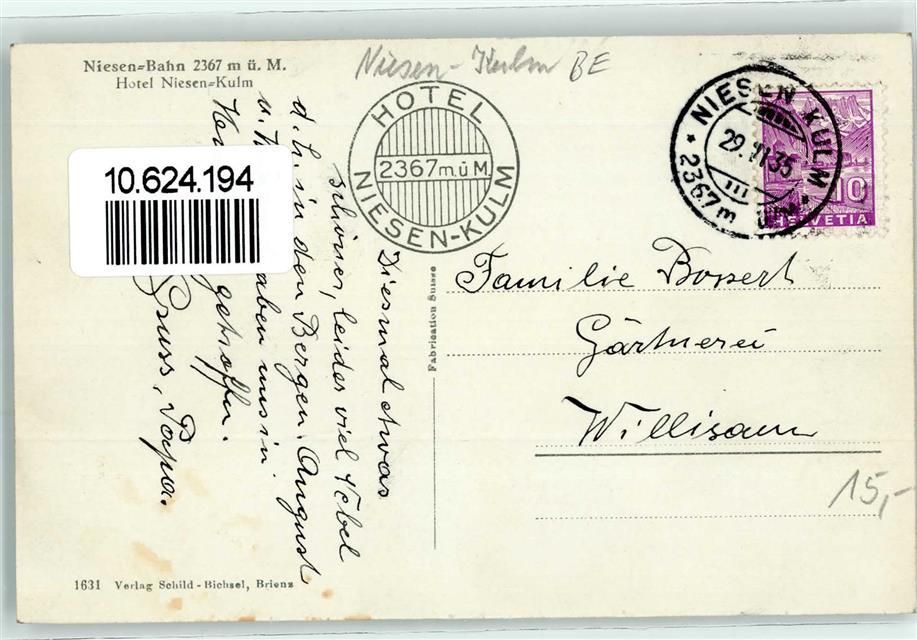 Niesen=Bahn 2367 m ü. M.
Hotel Niesen=Kulm
Niesen-Kulm BE
HOTEL
2367 m.ü M.
NIESEN-KULM
NIESEN KULM
29. VII 35
III
2367m
10
HELVETIA
10.624.194
Diesmal etwas
schöner, leider viel Nebel
d. h. in den Bergen. August
u.
haben uns in
getroffen.
Gruss, Papa.
Fabrication Suisse
Familie Bossert
Gärtnerei
Willisau
15,-
1631 Verlag Schild-Bichsel, Brienz